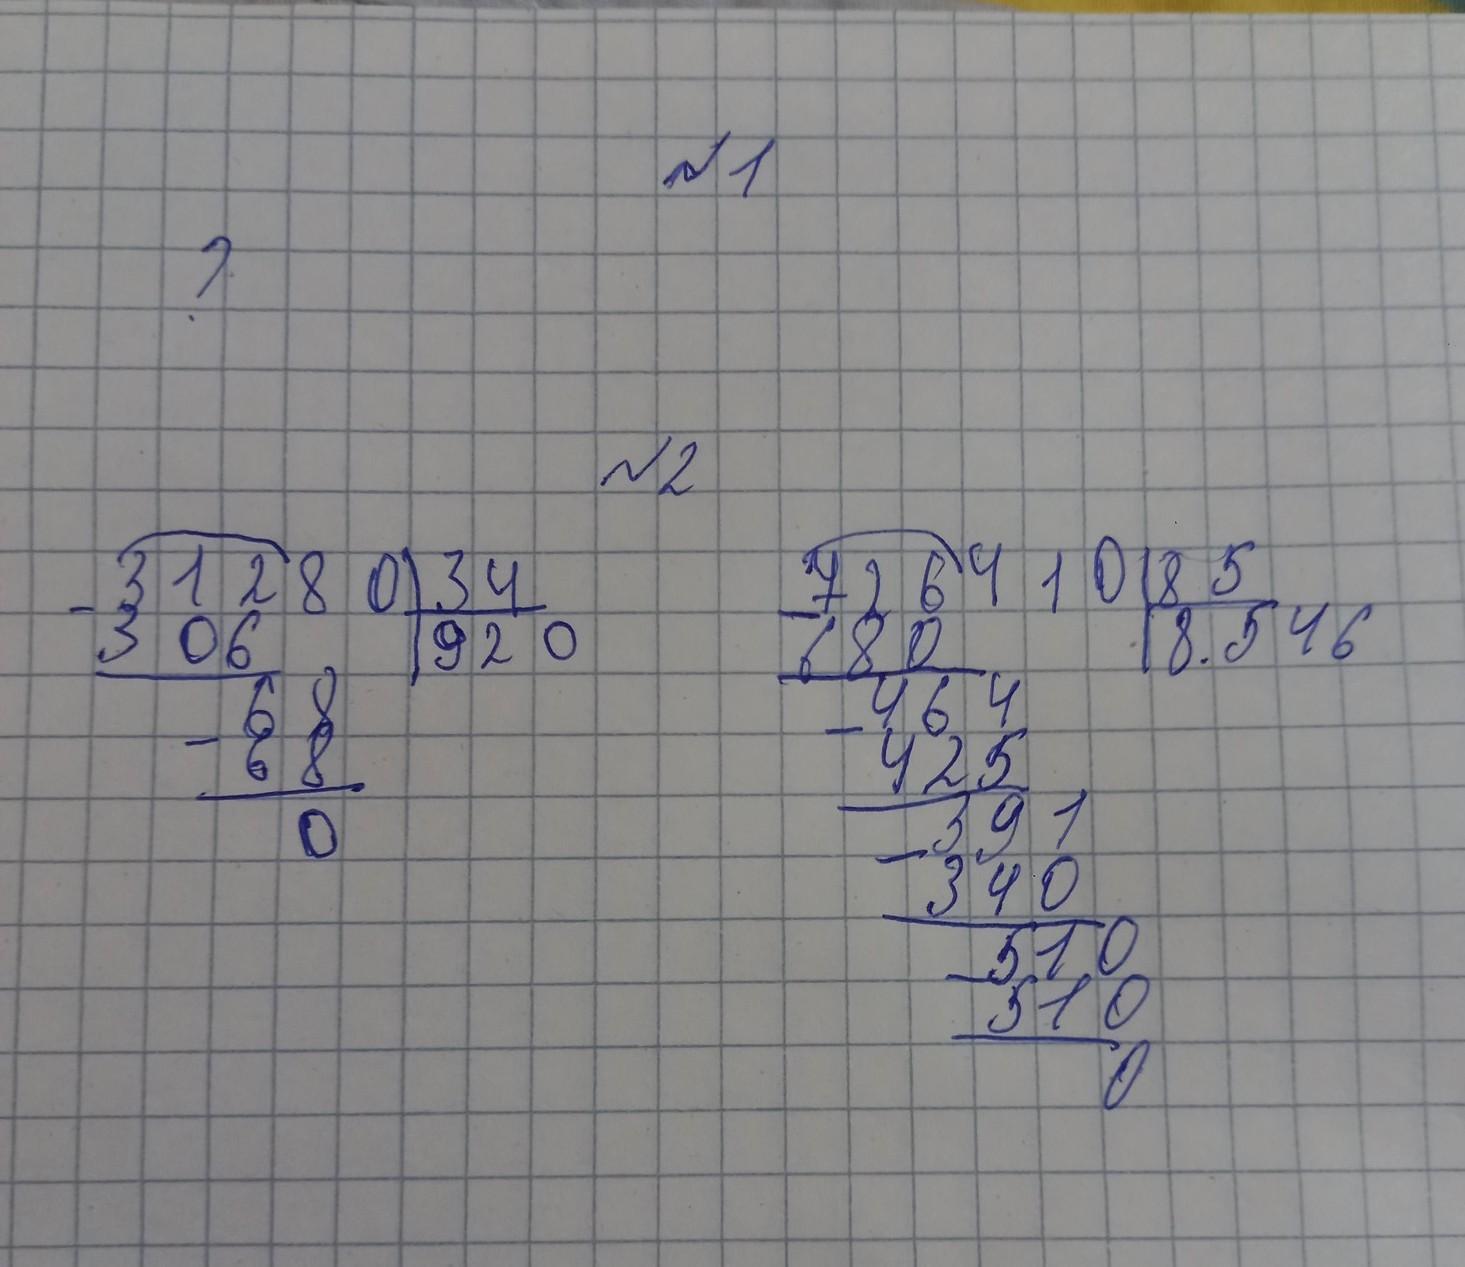 №1
?
№2
31280 34
- 306 920
68
- 68
0
726410 85
- 680 8.546
464
- 425
391
- 340
510
- 510
0